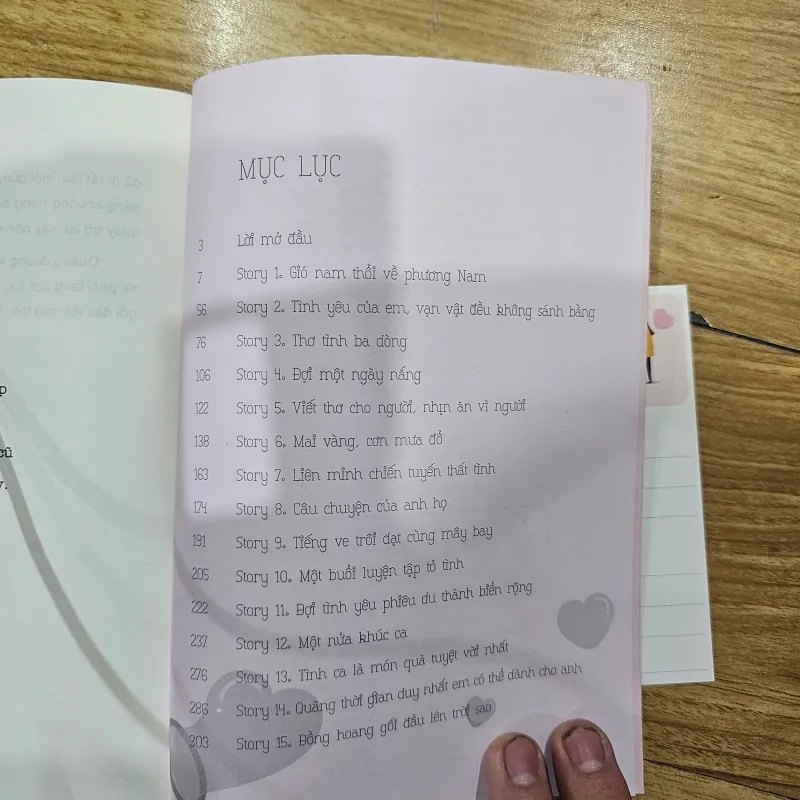 MỤC LỤC
3 Lời mở đầu
7 Story 1. Gió nam thổi về phương Nam
56 Story 2. Tình yêu của em, vạn vật đều không sánh bằng
76 Story 3. Thơ tình ba dòng
106 Story 4. Đợi một ngày nắng
122 Story 5. Viết thơ cho người, nhịn ăn vì người
138 Story 6. Mai vàng, cơn mưa đỏ
163 Story 7. Liên minh chiến tuyến thất tình
174 Story 8. Câu chuyện của anh họ
191 Story 9. Tiếng ve trôi dạt cùng mây bay
205 Story 10. Một buổi luyện tập tỏ tình
222 Story 11. Đợi tình yêu phiêu du thành biển rộng
237 Story 12. Một nửa khúc ca
276 Story 13. Tình ca là món quà tuyệt vời nhất
286 Story 14. Quãng thời gian duy nhất em có thể dành cho anh
303 Story 15. Đồng hoang gối đầu lên trời sao